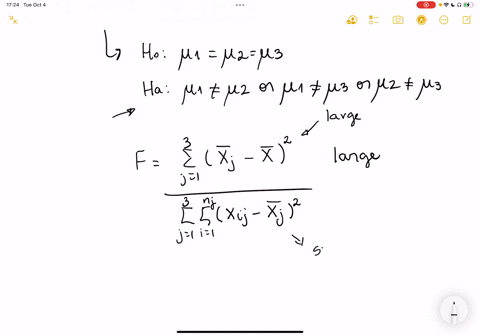 17:24 Tue Oct 4
Ho: μ1 = μ2 = μ3
Ha: μ1 ≠ μ2 or μ1 ≠ μ3 or μ2 ≠ μ3
large
F = Σ_{j=1}^{3} (X̄j - X̄)² large
Σ_{j=1}^{3} Σ_{i=1}^{nj} (Xij - X̄j)²